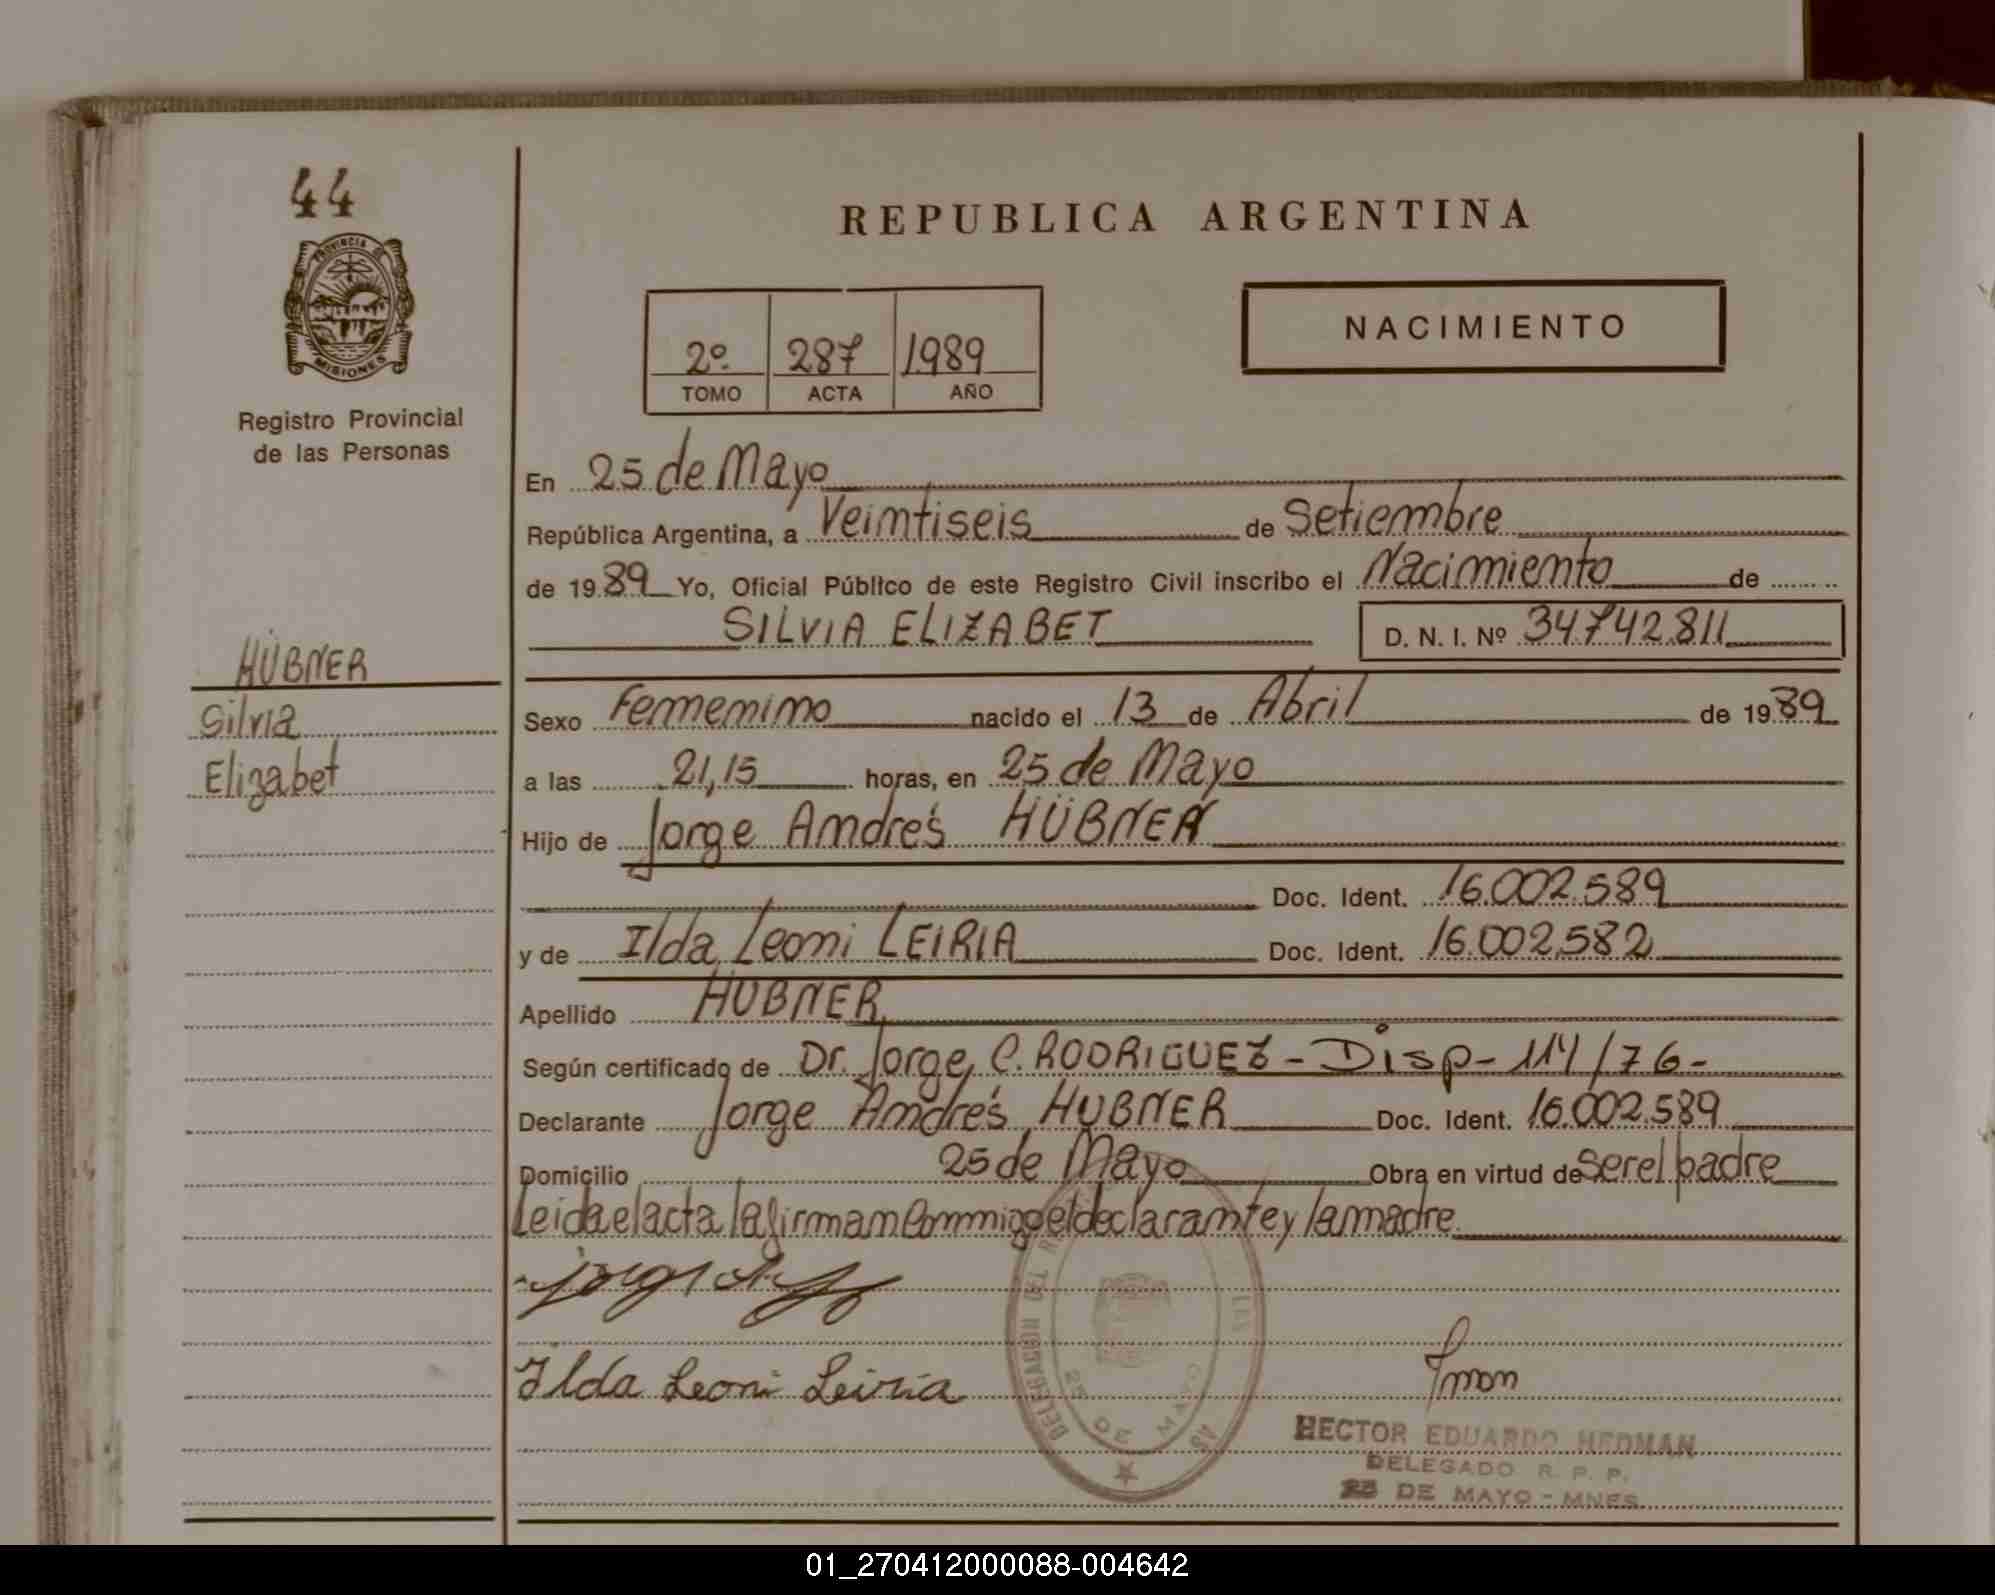 44
REPUBLICA ARGENTINA
PROVINCIA DE
MISIONES
Registro Provincial
de las Personas
2º. 287 1989
TOMO ACTA AÑO
NACIMIENTO
En 25 de Mayo
República Argentina, a Veintiseis de Setiembre
de 1989 Yo, Oficial Público de este Registro Civil inscribo el Nacimiento de
SILVIA ELIZABET D. N. I. Nº 34742811
HÜBNER
Silvia
Elizabet
Sexo Femenino nacido el 13 de Abril de 1989
a las 21,15 horas, en 25 de Mayo
Hijo de Jorge Andrés HÜBNER
Doc. Ident. 16.002.589
y de Ilda Leoni LEIRIA Doc. Ident. 16.002.582
Apellido HÜBNER
Según certificado de Dr. Jorge C. RODRIGUEZ - Disp - 114/76 -
Declarante Jorge Andrés HÜBNER Doc. Ident. 16.002.589
Domicilio 25 de Mayo Obra en virtud de ser el padre
Leida el acta la firman conmigo el declarante y la madre
Ilda Leoni Leiria
DELEGACION DEL
25 DE MAYO
HECTOR EDUARDO HEDMAN
DELEGADO R. P. P.
25 DE MAYO - MNES.
01_270412000088-004642